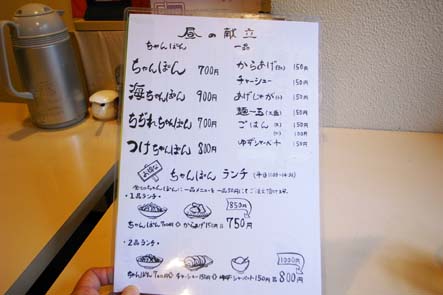 昼の献立
ちゃんぽん
ちゃんぽん 700円
海ちゃんぽん 900円
ちぢれちゃんぽん 700円
つけちゃんぽん 800円
一品
からあげ 150円
チャーシュー 150円
あげじゃが 150円
麺一玉 150円
ごはん 150円
100円
ゆずシャーベット 150円
ちゃんぽんランチ
・1品ランチ・
850円
ちゃんぽん700円 からあげ150円 750円
・2品ランチ・
1000円
ちゃんぽん700円 チャーシュー150円 ゆずシャーベット150円 800円